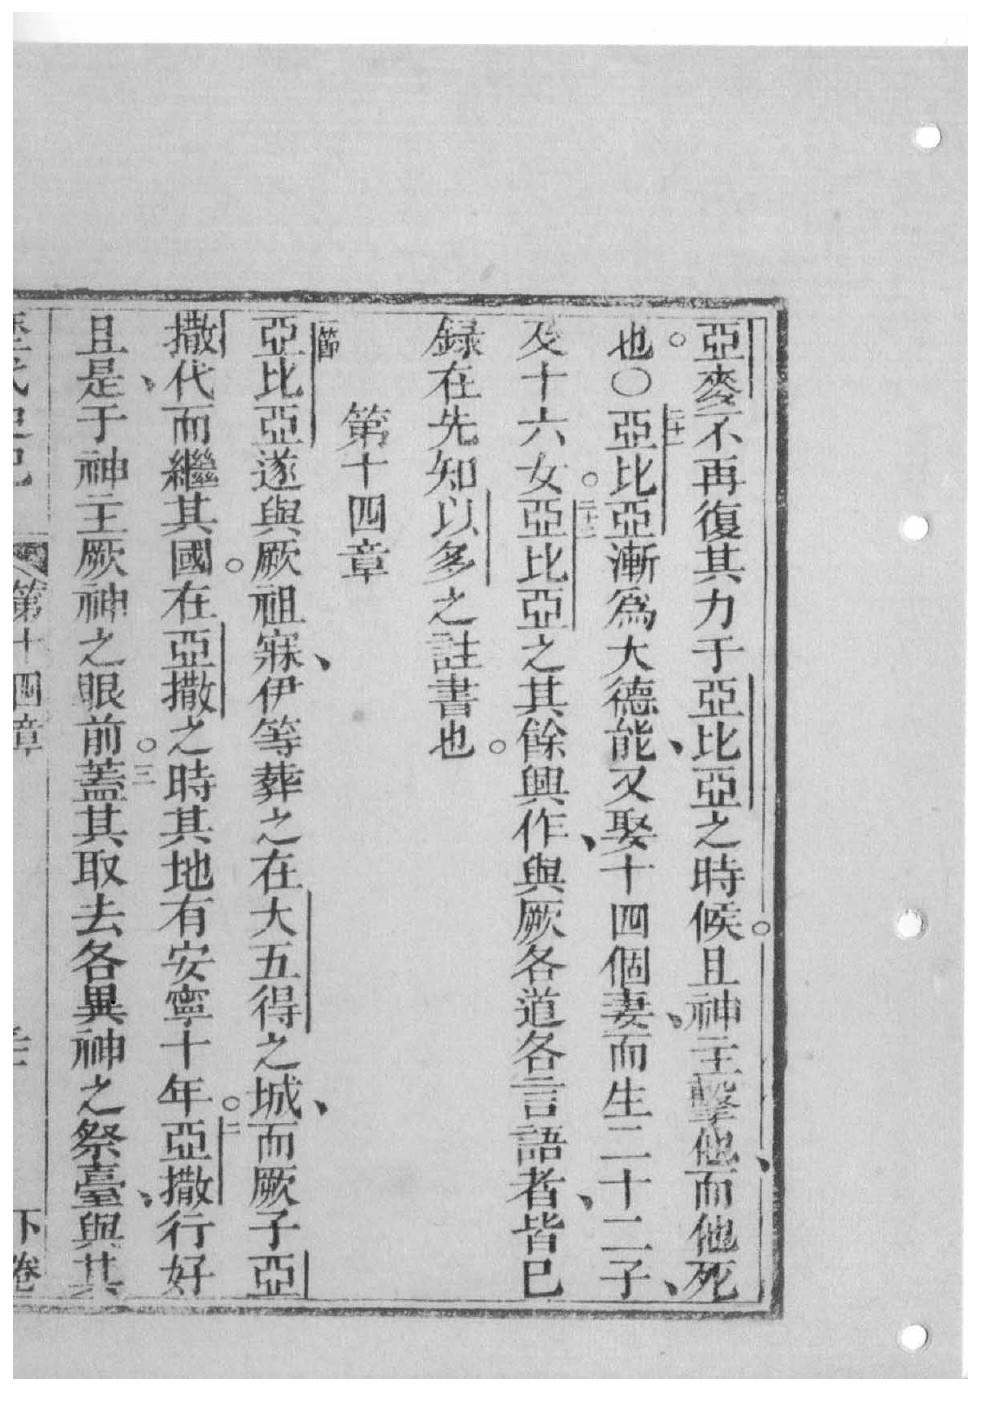 亞麥不再復其力于亞比亞之時候。且神主擊他、而他死
也。〇二十一亞比亞漸爲大德能、又娶十四個妻、而生二十二子、
及十六女。二十二亞比亞之其餘興作、與厥各道各言語者、皆已
録在先知以多之註書也。
第十四章
節亞比亞遂與厥祖寐、伊等葬之在大五得之城、而厥子亞
撒代而繼其國。在亞撒之時其地有安寧十年。二亞撒行好
且是、于神主厥神之眼前。三蓋其取去各異神之祭臺、與其
歷代史記 第十四章 下卷